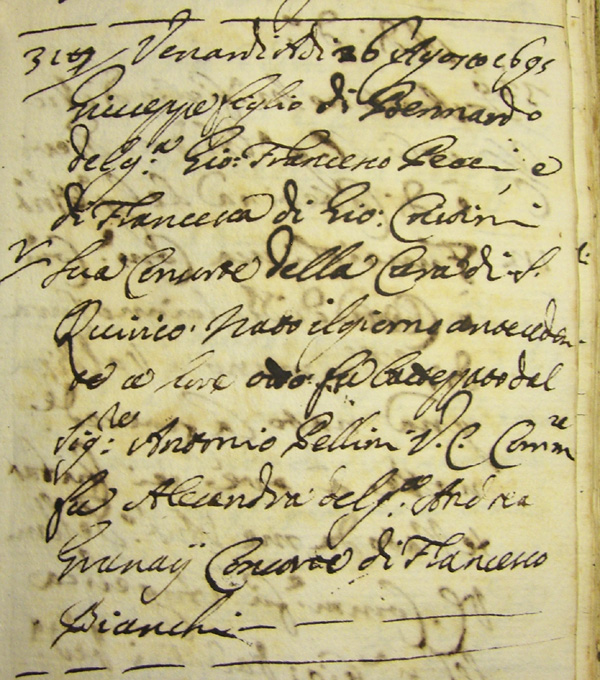 319 Venardi Adi 26 Agosto 1695
Giuseppe figlio di Bennardo
del q.m Gio: Francesco Pecci e
di Francesca di Gio: Crisini
sua Consorte della Cura di S.
Quirico. Nato il giorno anteceden-
te a hore otto. fu battezzato dal
Sig.re Antonio Pellini V. C. Comm.re
fu Alesandra del q.m Andrea
Consorte di Francesco
Bianchi